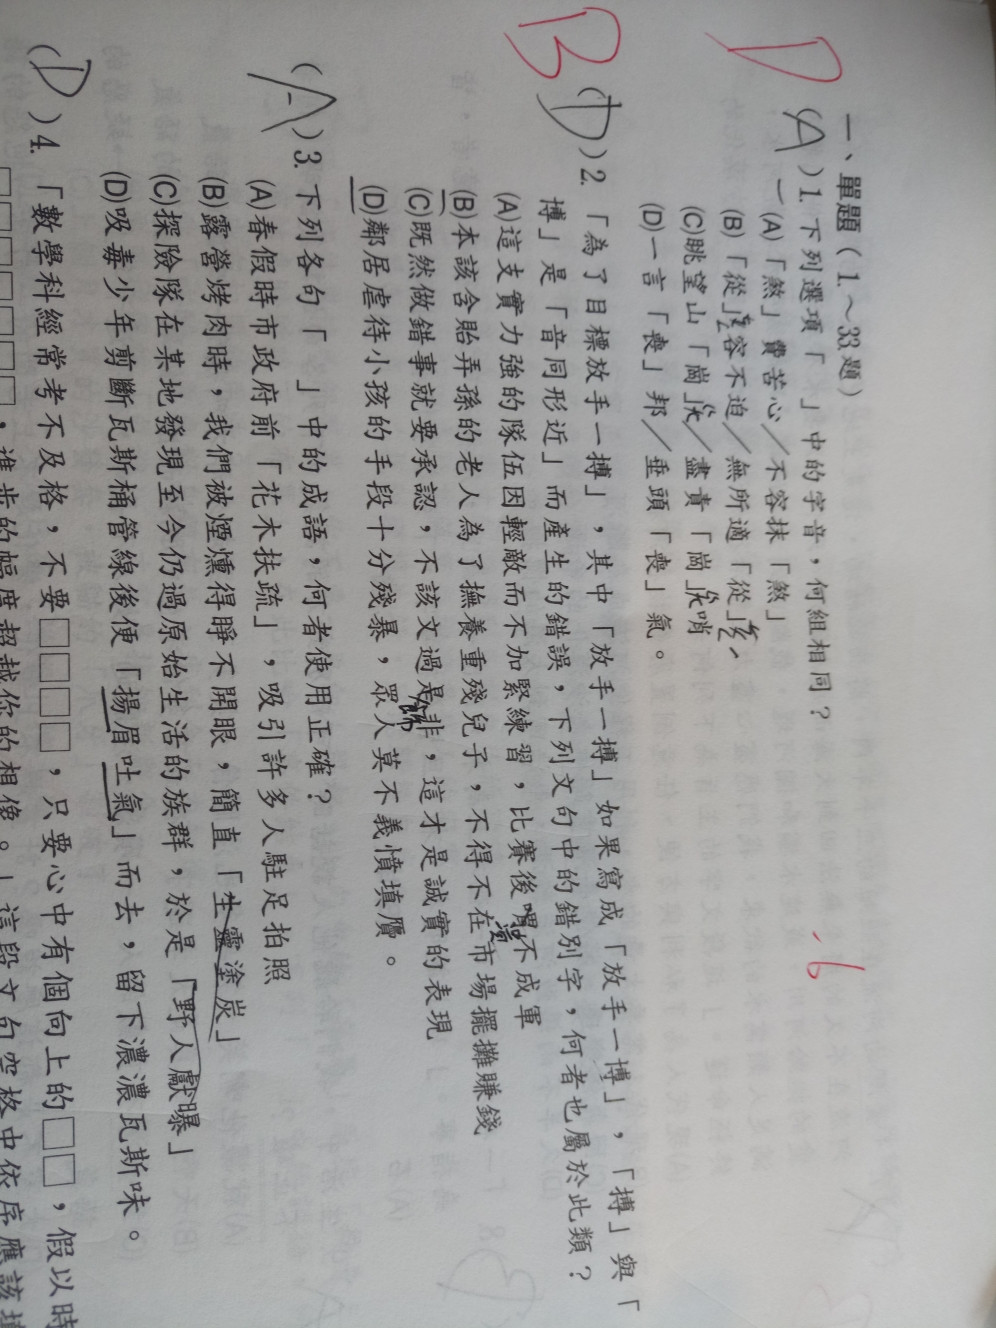 一、單題（1.～33.題）
D
(A) 1. 下列選項「 」中的字音，何組相同？
(A)「煞」費苦心／不容抹「煞」
(B)「從」容不迫／無所適「從」
(C)眺望山「崗」／盡責「崗」哨
(D)一言「喪」邦／垂頭「喪」氣。
-6
B
(D) 2. 「為了目標放手一搏」，其中「放手一搏」如果寫成「放手一博」，「搏」與「
博」是「音同形近」而產生的錯誤，下列文句中的錯別字，何者也屬於此類？
(A)這支實力強的隊伍因輕敵而不加緊練習，比賽後潰不成軍
(B)本該含貽弄孫的老人為了撫養重殘兒子，不得不在市場擺攤賺錢
(C)既然做錯事就要承認，不該文過是非，這才是誠實的表現
飾
(D)鄰居虐待小孩的手段十分殘暴，眾人莫不義憤填贗。
(A) 3. 下列各句「 」中的成語，何者使用正確？
(A)春假時市政府前「花木扶疏」，吸引許多人駐足拍照
(B)露營烤肉時，我們被煙燻得睜不開眼，簡直「生靈塗炭」
(C)探險隊在某地發現至今仍過原始生活的族群，於是「野人獻曝」
(D)吸毒少年剪斷瓦斯桶管線後便「揚眉吐氣」而去，留下濃濃瓦斯味。
(D) 4. 「數學科經常考不及格，不要□□□□，只要心中有個向上的□□，假以時
□□□□□，進步的幅度超越你的想像。」這段文句空格中依序應該填